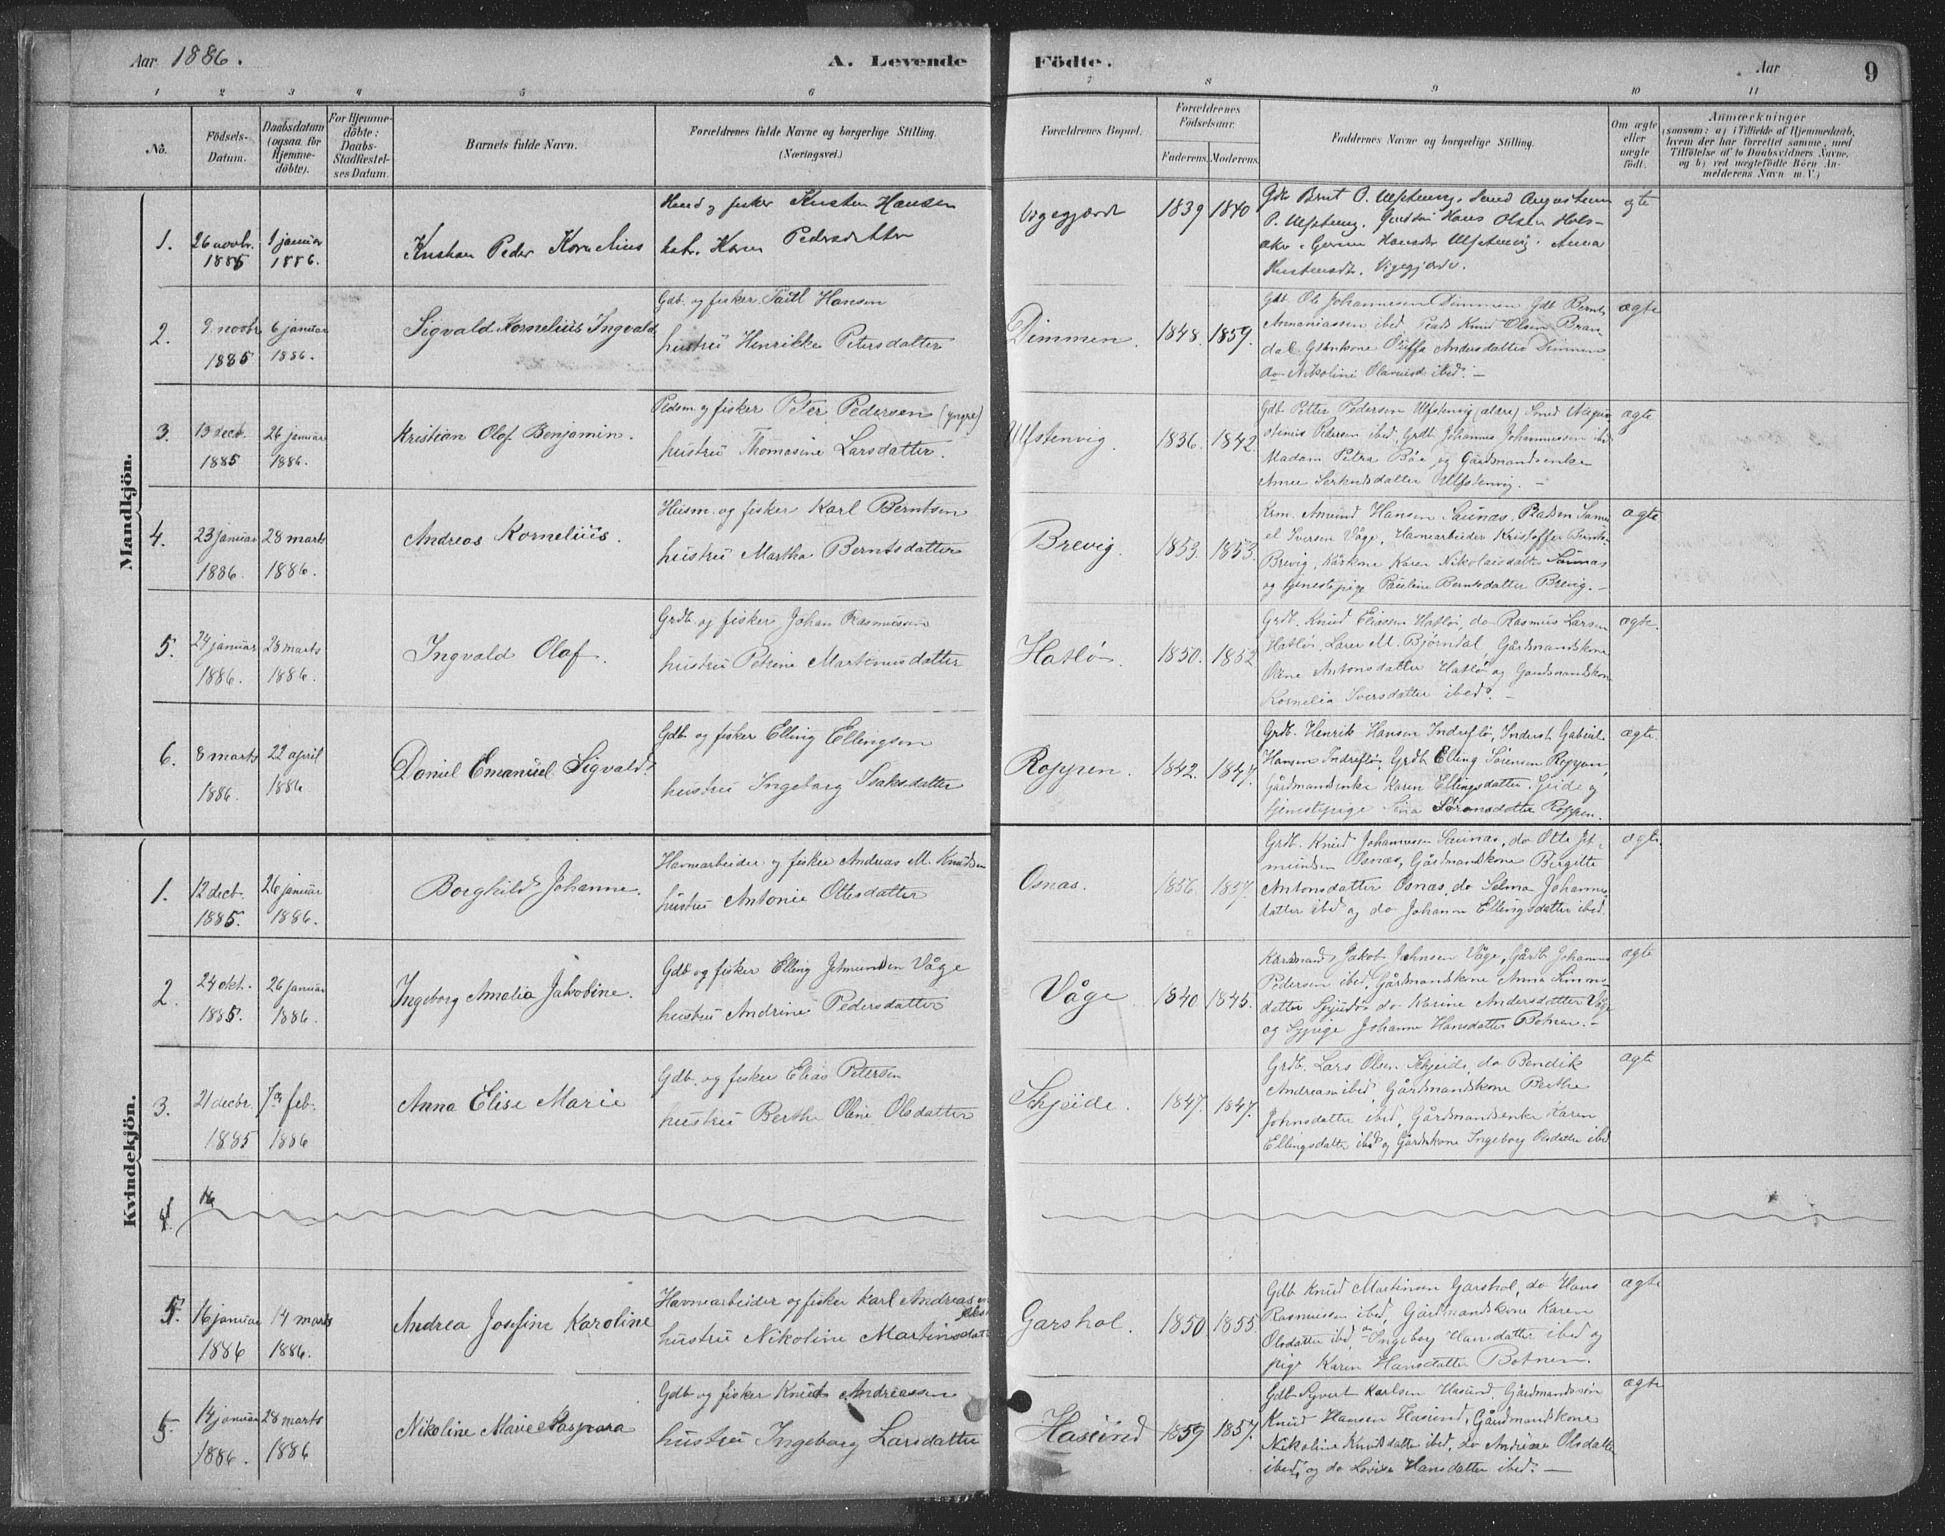 Aar 1886.
A. Levende
Födte.
Aar
9
1 2 3 4 5 6
7 8 9 10 11
No.
Födsels-
Datum.
Daabsdatum
(ogsaa for
Hjemme-
döbte).
For Hjemme-
döbte:
Daabs-
Stadfæstel-
ses Datum.
Barnets fulde Navn.
Forældrenes fulde Navne og borgerlige Stilling.
(Næringsvei.)
Forældrenes Bopæl.
Forældrenes
Födselsaar.
Faderens. Moderens.
Faddernes Navne og borgerlige Stilling.
Om ægte
eller
uægte
födt.
Anmærkninger
(saasom: a) i Tilfælde af Hjemmedaab,
hvem der har forrettet samme, med
Tilföielse af to Daabsvidners Navne,
og b) ved uægtefödte Börn An-
melderens Navn m. V.)
Mandkjön.
1. 26 novbr. 1885
1 januar 1886.
Kristian Peder Kornelius
fisker Kristen Hansen
Karen Pedersdatter
Vigegjærde
1839 1840
Gdb Bernt P. Ulfstenvig,
P. Ulfstenvig, Hans Olsen
Hansdtr Ulfstenvig. Anna
Vigegjærde.
ægte
2. 9. novbr 1885
6 januar 1886.
Sigvald Kornelius Ingvald
Gdb. og fisker Hansen
hustru Henrikke Petersdatter
Dimmen.
1848. 1859.
Gdb Ole Johannesen Dimmen Gdb Bernt
Annaniassen ibed, Knud Olsen Bran-
dal Andersdatter Dimmen
do Nikoline ibed. –
ægte
3. 13 decb. 1885
26 januar 1886.
Kristian Olaf Benjamin.
Pldsm og fisker Peter Pedersen (yngre)
hustru Thomasine Larsdatter.
Ulfstenvig
1836. 1842
Gdb Petter Pedersen Ulfstenvig (ældre)
Pedersen ibed, Grdb Johannes Johannessen ibed
Madam Petra Bøe og Gårdmandsenke
Ulfstenvig. –
ægte
4. 23 januar 1886.
28 marts 1886.
Andreas Kornelius.
Husm. og fisker Karl Berntsen
hustru Martha Berntsdatter
Brevig.
1853. 1853.
Amund Hansen Saunas,
el Iversen Våge, Havnearbeider Kristoffer
Brevig, Karen Nikolaisdatter Saunas
og tjenestepige Pauline Berntsdatter Brevig. –
ægte
5. 24 januar 1886.
28 marts 1886.
Ingvald Olaf.
Grdb og fisker Johan Rasmussen
hustru Petrine Martinusdatter
Hatlø.
1850. 1852
Grdb. Knud Eliassen Hatlø, do Rasmus Larsen
Hatlø, Lars M. Bjørndal, Gårdmandskone
Oline Antonsdatter Hatlø og Gardmandskon
Kornelia Iversdatter ibed. –
ægte.
6. 8 marts 1886.
22 april 1886
Daniel Emanuel Sigvald.
Gdb og fisker Elling Ellingsen
hustru Ingeborg Isaksdatter
Roppen.
1842. 1847.
Grdb. Henrik Hansen Indreflø, Inderst Gabriel
Hansen Indreflø, Grdb Elling Sørensen Roppen,
Gårdmandsenke Karen Ellingsdatter og
tjenestepige Sina Sørensdatter Roppen.
ægte.
Kvindekjön.
1. 12 decb. 1885.
26 januar 1886.
Borghild Johanne.
Havnearbeider og fisker Andreas M. Knudsen
hustru Antonie Ottesdatter
Osnas.
1856. 1857.
Grdb. Knud Johannessen Saunas, do Otte Jet-
mundsen Osnæs, Gårdmandskone Birgitte
Antonsdatter Osnæs, do Selma Johannes
datter ibed og do Johanne Ellingsdatter ibed.
ægte
2. 24 okt. 1885.
26 januar 1886.
Ingeborg Amalia Jakobine.
Gdb og fisker Elling Jetmundsen Våge
hustru Andrine Pedersdatter
Våge.
1840 1845.
Jakob Johnsen Våge, Gårdb Johannes
Pedersen ibed, Gårdmandskone Anna Simons-
datter do Karine Andersdatter Våge
og Sypige Johanne Hansdatter Botnen. –
ægte
3. 21 decbr 1885
7de feb. 1886
Anna Elise Marie
Gdb. og fisker Elias Petersen
hustru Berthe Oline Olsdatter
Skjeide.
1847. 1847.
Grdb. Lars Olsen Skjeide, do Bendik
Andreasen ibed, Gårdmandskone Berthe
Johnsdatter ibed, Gårdmandsenke Karen
Ellingsdatter ibed og Gårdskone Ingeborg Olsdatter ibed
ægte
4.
16
5. 16 januar 1886
14 marts 1886.
Andrea Josefine Karoline
Havnearbeider og fisker Karl Andreas
hustru Nikoline Martinsdatter
Garshol.
1850 1855.
Gdb Knud Martinsen Garshol, do Hans
Rasmussen ibed, Gårdmandskone Karen
Olsdatter ibed, Ingeborg Hansdatter ibed og
pige Karen Hansdatter Botnen.
ægte
5. 14 januar 1886.
28 marts 1886
Nikoline Marie Kaspara
Gdb og fisker Knut Andreassen
hustru Ingeborg Larsdatter
Hasund
1859 1857.
Gdb Syvert Karlsen Hasund, Gårdmandssøn
Knud Hansen Hasund, Gårdmandskone
Nikoline Knutsdatter ibed, do Andrea Olsdatter
ibed, og do Lovise Hansdatter ibed. –
ægte